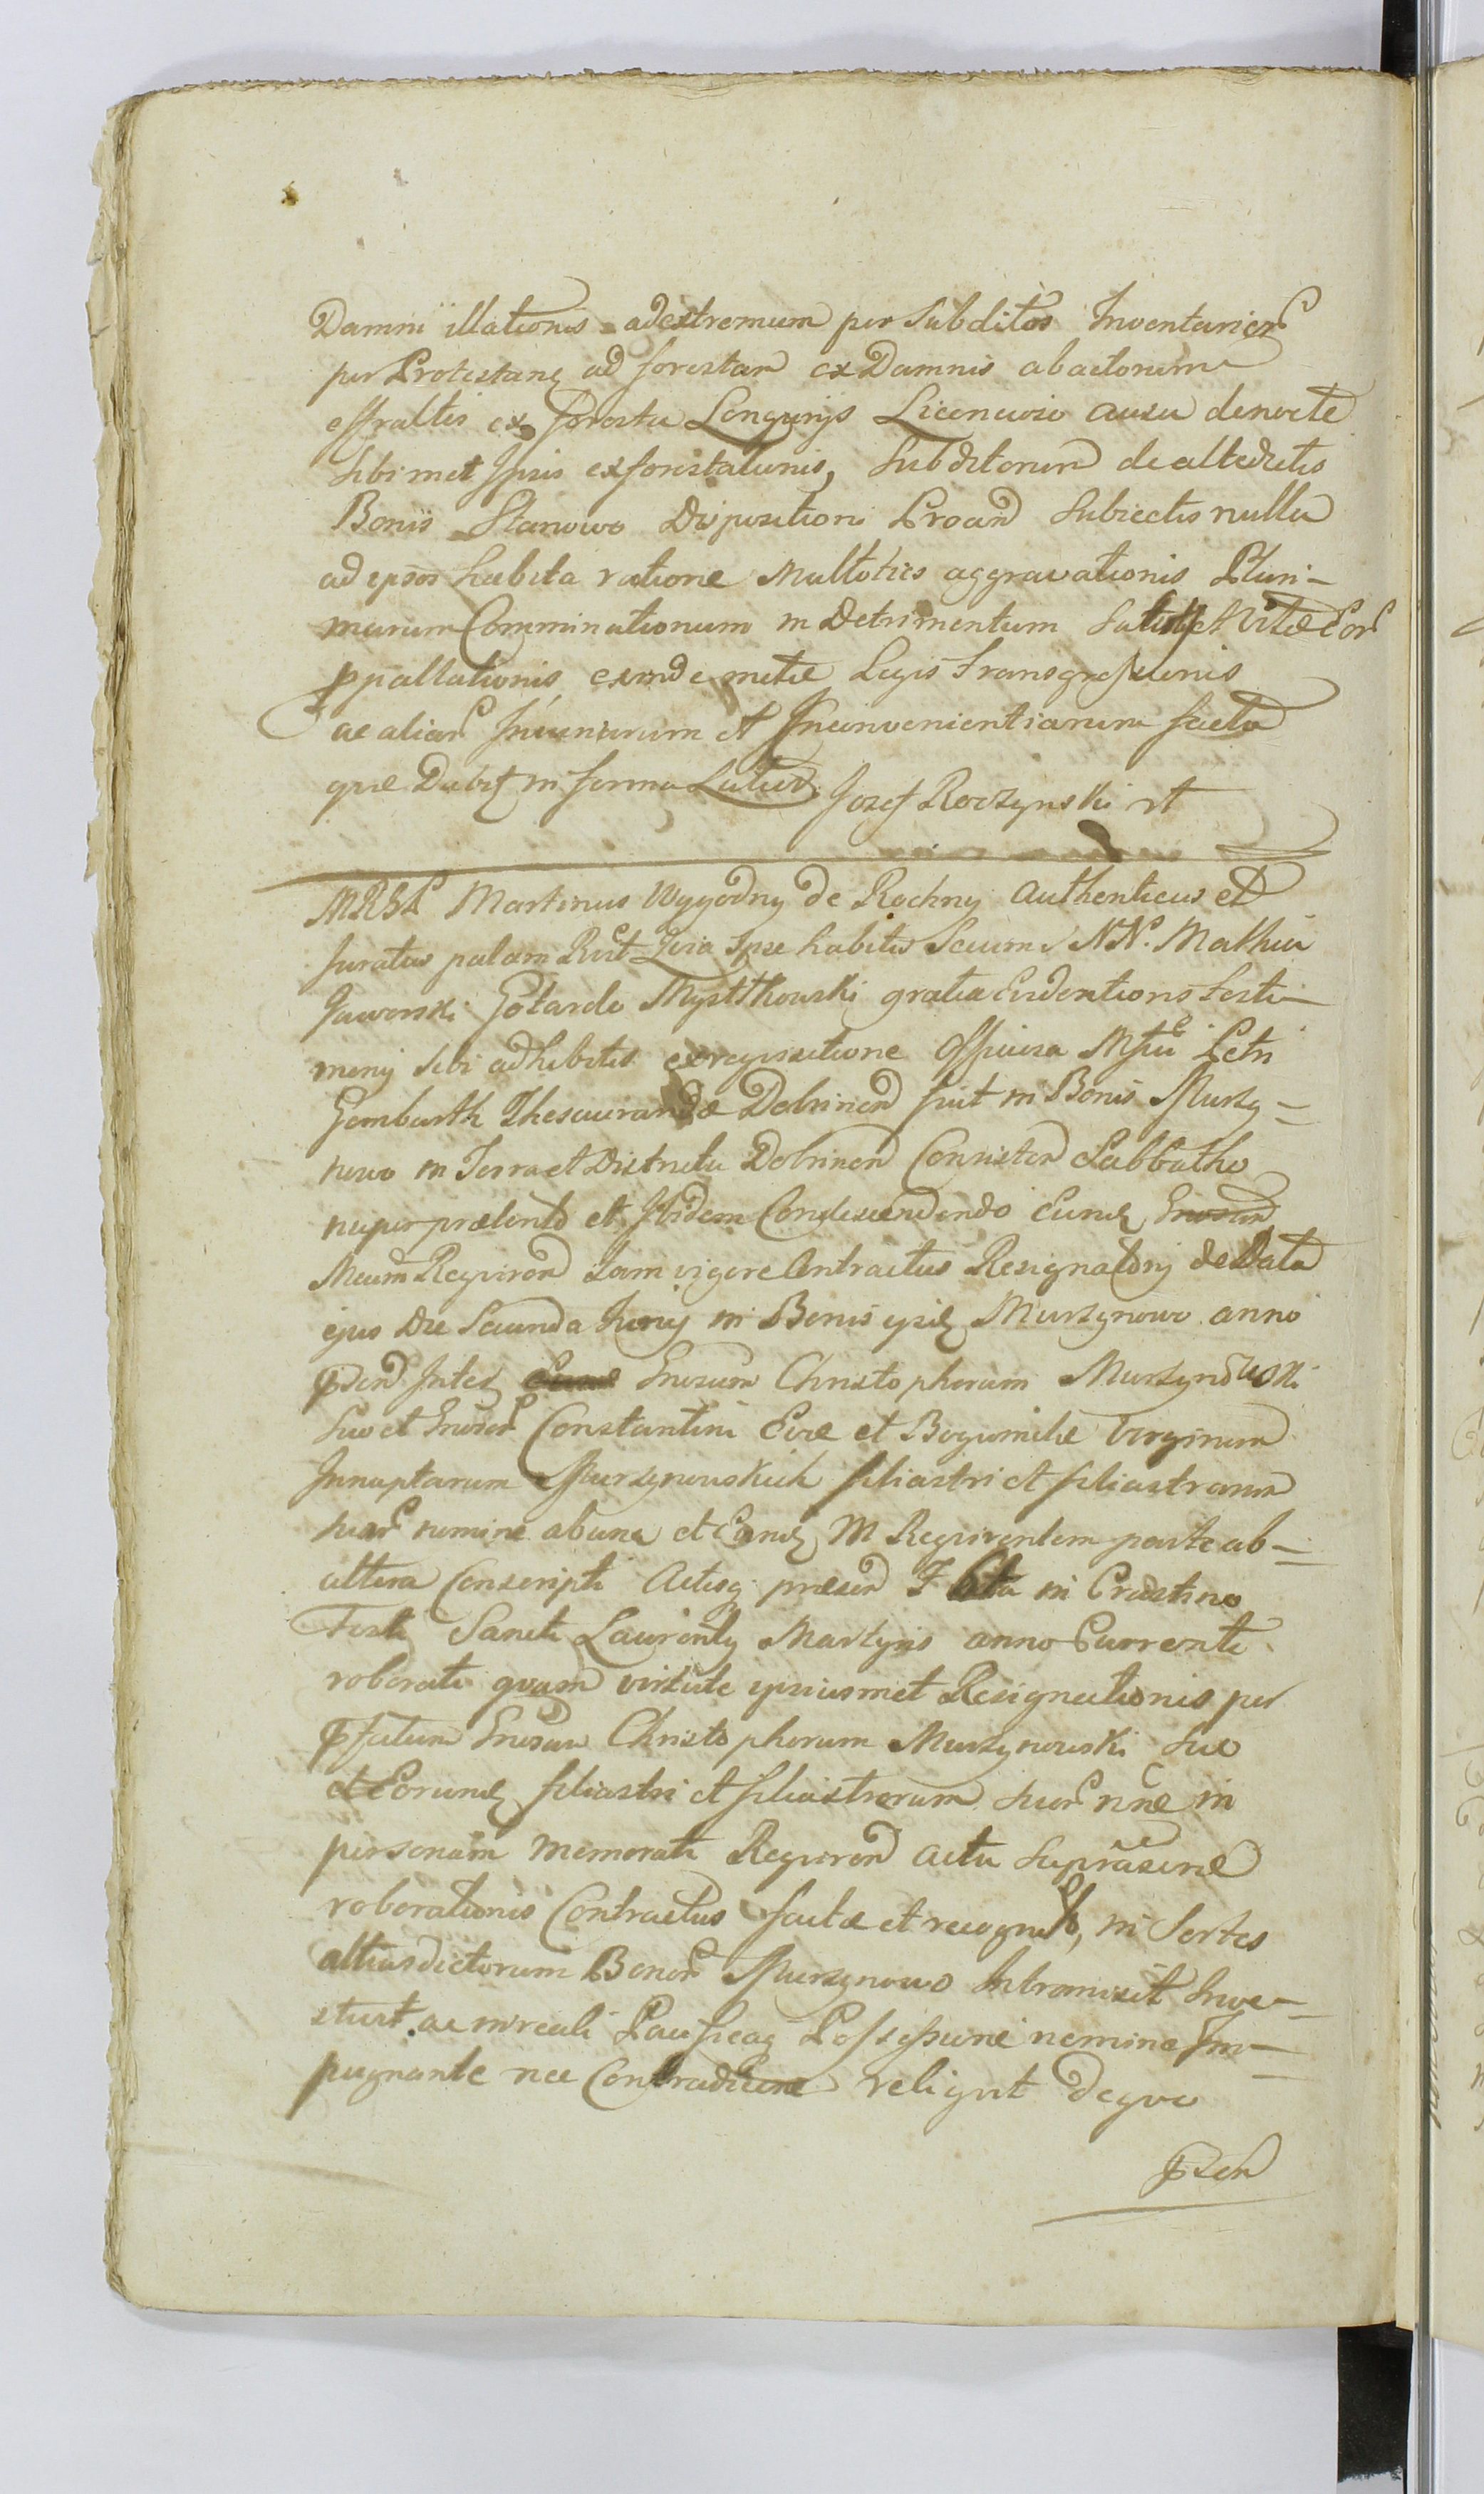 Damni illationis adextremum per Subditos Inventarior
per Protestans ad forestam ex Damnis abactorum
effraltis ex foresta Longurijs Licencioso ausu denocte
sibimet Ipsis exforestationis, Subditorum dealtedictis
Boniis Stanowo Dispositioni Proand Subiectis nulla
ad ipsos habita ratione Multoties aggravationis Pluri-
marum Comminationum in Detrimentum et Vitæ Eor
ppallationis eximde metæ Legis transgressionis
ac aliar Iniuriarum et Inconvenientiarum facta
que Dabit in forma Latius Jozef Roczynski rt
MRGL Martinus Wygodny de Rochny Authenticus et
Juratus palam Rect Quia Ipse habitis Secum NN. Mathia
Jaworski Gotardo Mystkowski gratia Evidentioris testi-
monij sibi adhibitis exrequisitione Officiosa Mfici Petri
Gembarth Thesauraridæ Dobrinen fuit in Bonis Murzy-
nowo in Terra et Districtu Dobrinen Consisten Sabbatho
nuper præterito et Ibidem Condescendendo Eund
Meum Requiren tam vigore Contractus Resignatorij de Data
ejus Die Secunda Junij in Bonis ipsis Murzynowo anno
pden Inter Gnosum Christophorum Murzynowski
Suo et Gnosor Constantini Evæ et Bogumilæ Virginum
Innuptarum Murzynowskich filiastri et filiastrarum
suar nomine abuna et Eund M Requirentem parte ab-
altera Conscripti Actisq præsen F in Crastino
Festi Sancti Laurentij Martyris anno Currenti
roborati quam virtute ipsiusmet Resignationis per
pfatum Gnosum Christophorum Murzynowski Suo
et Eorund filiastri et filiastrarum suor nne in
personam memorati Requiren actu
roborationis Contractus factæ et recognitæ, in Sortes
altiusdictorum Bonor Murzynowo Intromisit Inve-
stivit ac in reali Pacificaq Possessione nemine Im-
pugnante nec Contradicene reliquit dequo
pzen